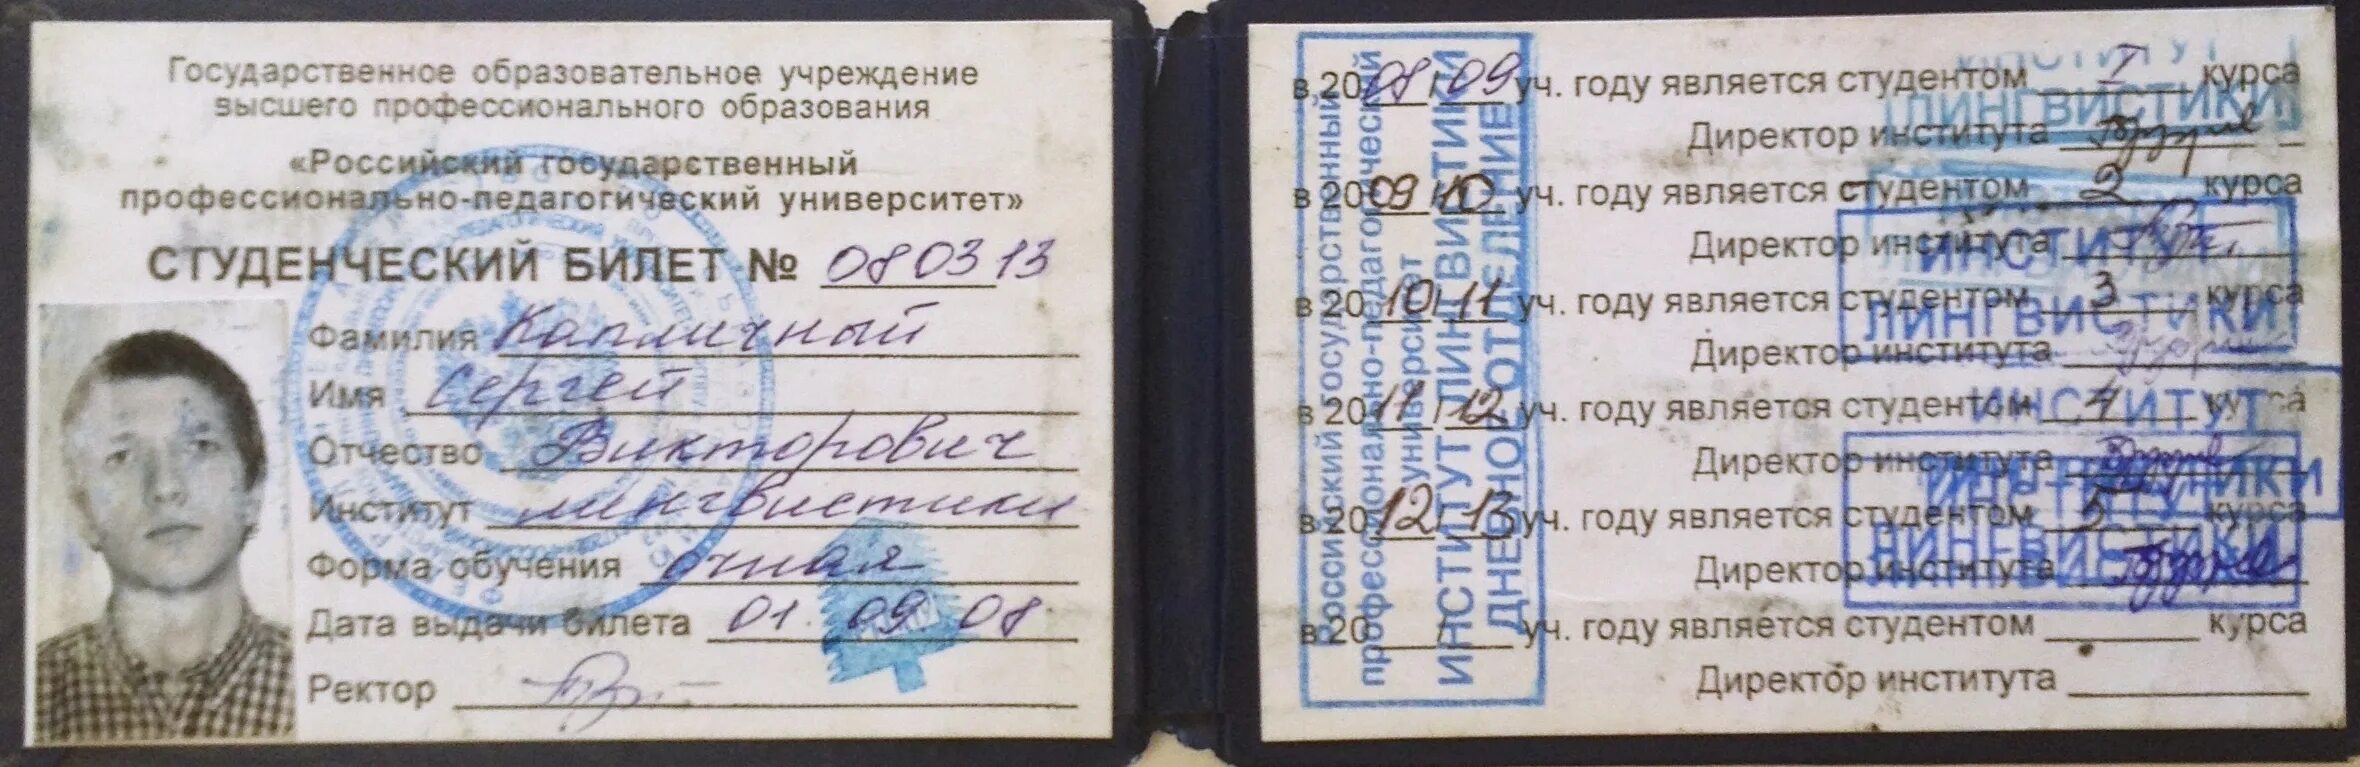 Государственное образовательное учреждение
высшего профессионального образования
«Российский государственный
профессионально-педагогический университет»
СТУДЕНЧЕСКИЙ БИЛЕТ № 080313
Фамилия Капличный
Имя Сергей
Отчество Викторович
Институт лингвистики
Форма обучения очная
Дата выдачи билета 01.09.08
Ректор
Российский государственный
профессионально-педагогический
университет
ИНСТИТУТ ЛИНГВИСТИКИ
ДНЕВНОЕ ОТДЕЛЕНИЕ
в 2008/09 уч. году является студентом I курса
Директор института
ИНСТИТУТ
ЛИНГВИСТИКИ
в 2009/10 уч. году является студентом 2 курса
Директор института
ИНСТИТУТ
ЛИНГВИСТИКИ
в 2010/11 уч. году является студентом 3 курса
Директор института
в 2011/12 уч. году является студентом 4 курса
ИНСТИТУТ
ЛИНГВИСТИКИ
Директор института
ИНСТИТУТ
ЛИНГВИСТИКИ
в 2012/13 уч. году является студентом 5 курса
Директор института
в 20 / уч. году является студентом курса
Директор института